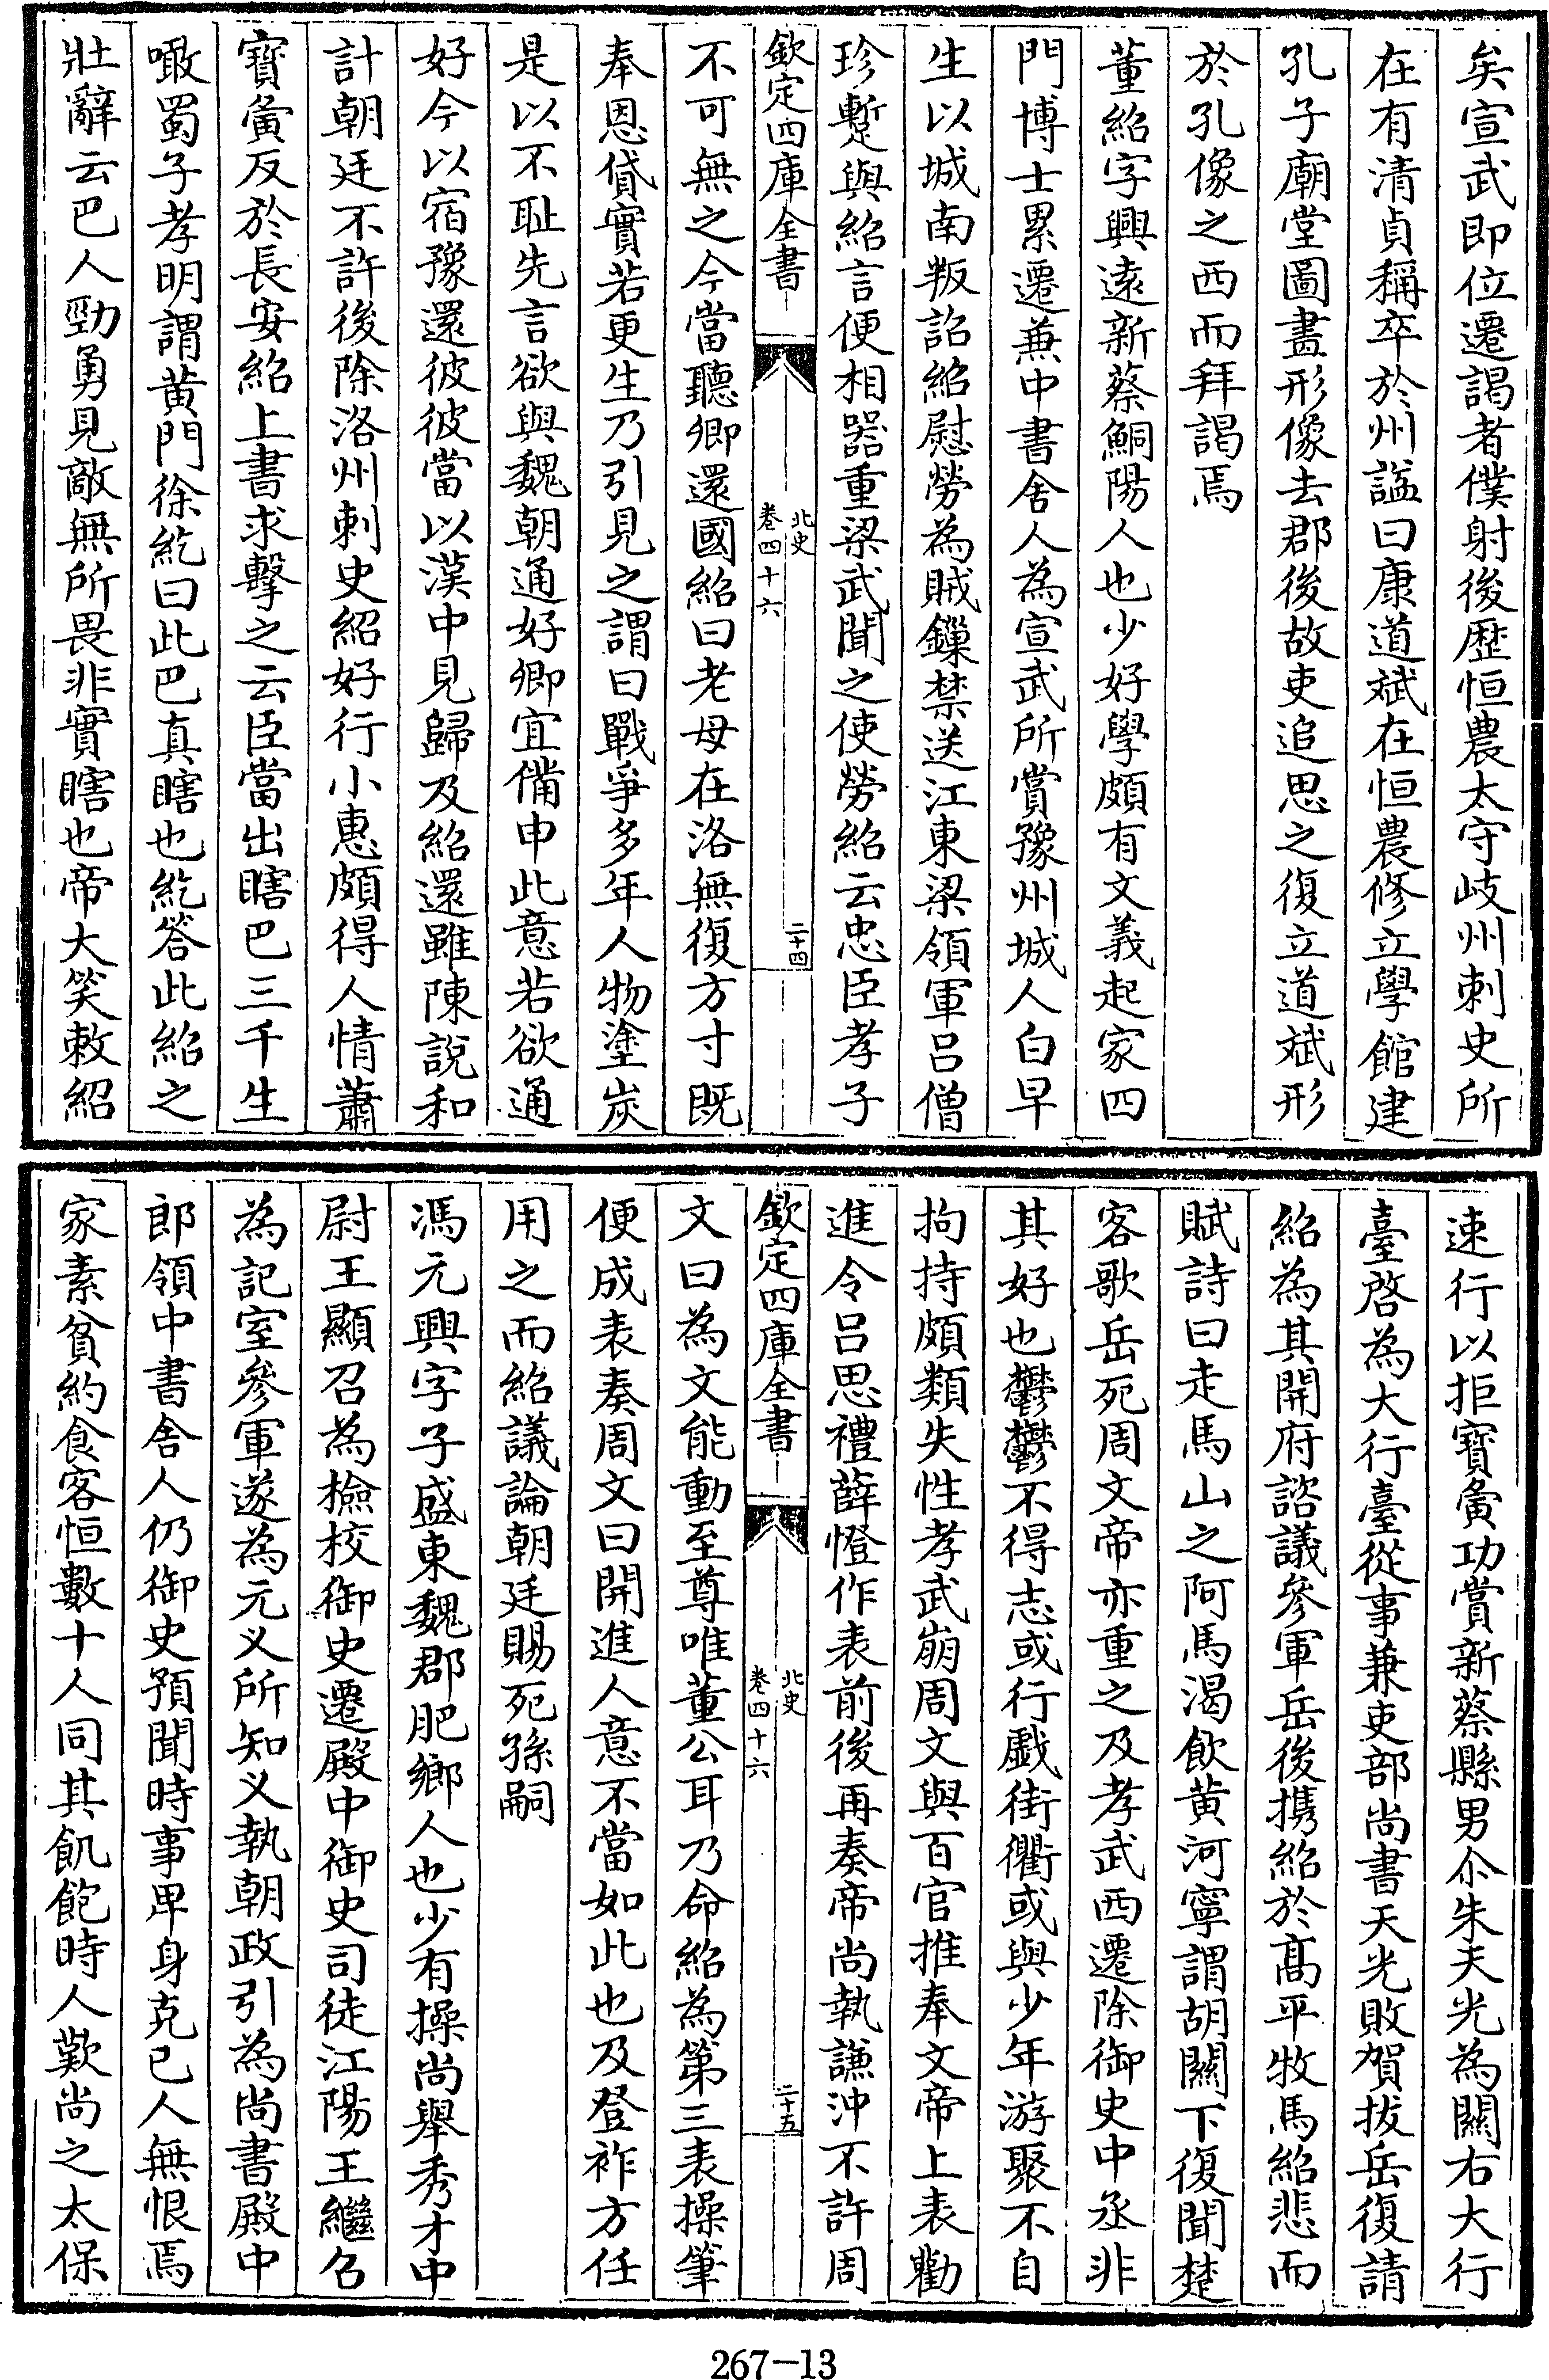 矣宣武即位遷謁者僕射後歴恒農太守岐州刺史所
在有清貞稱卒於州諡曰康道斌在恒農修立學館建
孔子廟堂圖畫形像去郡後故吏追思之復立道斌形
於孔像之西而拜謁焉
董紹字興遠新蔡鮦陽人也少好學頗有文義起家四
門博士累遷兼中書舍人為宣武所賞豫州城人白早
生以城南叛詔紹慰勞為賊鏁禁送江東梁領軍呂僧
珍暫與紹言便相器重梁武聞之使勞紹云忠臣孝子
欽定四庫全書
北史
卷四十六
二十四
不可無之今當聽卿還國紹曰老母在洛無復方寸既
奉恩貸實若更生乃引見之謂曰戰爭多年人物塗炭
是以不耻先言欲與魏朝通好卿宜備申此意若欲通
好今以宿豫還彼彼當以漢中見歸及紹還雖陳說和
計朝廷不許後除洛州刺史紹好行小惠頗得人情蕭
寶夤反於長安紹上書求擊之云臣當出瞎巴三千生
噉蜀子孝明謂黄門徐紇曰此巴真瞎也紇答此紹之
壯辭云巴人勁勇見敵無所畏非實瞎也帝大笑敕紹
速行以拒寶夤功賞新蔡縣男尒朱天光為關右大行
臺啓為大行臺從事兼吏部尚書天光敗賀拔岳復請
紹為其開府諮議參軍岳後攜紹於髙平牧馬紹悲而
賦詩曰走馬山之阿馬渴飲黄河寧謂胡關下復聞楚
客歌岳死周文帝亦重之及孝武西遷除御史中丞非
其好也鬱鬱不得志或行戲街衢或與少年游聚不自
拘持頗類失性孝武崩周文與百官推奉文帝上表勸
進令呂思禮薛憕作表前後再奏帝尚執謙沖不許周
欽定四庫全書
北史
卷四十六
二十五
文曰為文能動至尊唯董公耳乃命紹為第三表操筆
便成表奏周文曰開進人意不當如此也及登祚方任
用之而紹議論朝廷賜死孫嗣
馮元興字子盛東魏郡肥鄉人也少有操尚舉秀才中
尉王顯召為檢校御史遷殿中御史司徒江陽王繼召
為記室參軍遂為元义所知义執朝政引為尚書殿中
郎領中書舍人仍御史預聞時事卑身克已人無恨焉
家素貧約食客恒數十人同其飢飽時人歎尚之太保
267-13